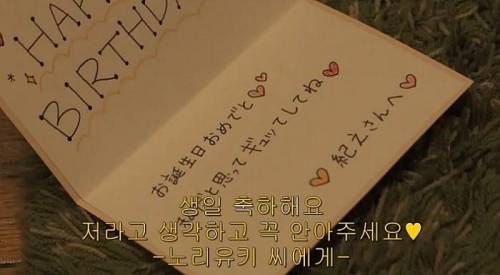 HAP
BIRTHDA
紀之さんへ
お誕生日おめでと
と思ってギュッてしてね
생일 축하해요
저라고 생각하고 꼭 안아주세요♥
-노리유키 씨에게-